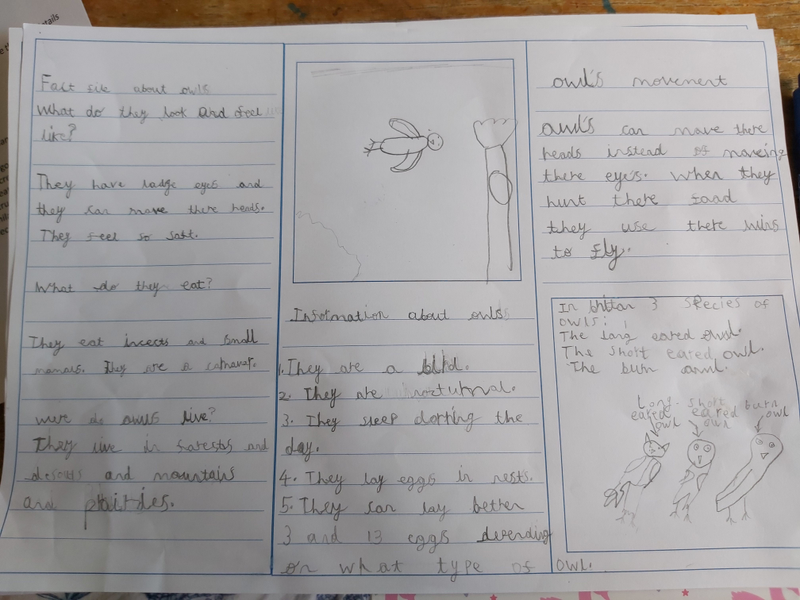 Fact file about owls
What do they look and feel
like?
They have ladge eyes and
they can move there heads.
They feel so soft.
What do they eat?
They eat insects and small
mamals. They are a
were do owls live?
They live in forests and
deserts and mountains
and prairies.
Information about owls
1. They are a bird.
2. They are nocturnal.
3. They sleep dorting the
day.
4. They lay eggs in nests.
5. They can lay better
3 and 13 eggs depending
on what type of owl.
owl's movement
owl's can move there
heads instead of moveing
there eyes. When they
hunt there food
they use there wins
to fly.
In brittan 3 species of
owls:
The long eared owl.
The short eared owl.
The burn owl.
Long eared owl
short eared owl
burn owl